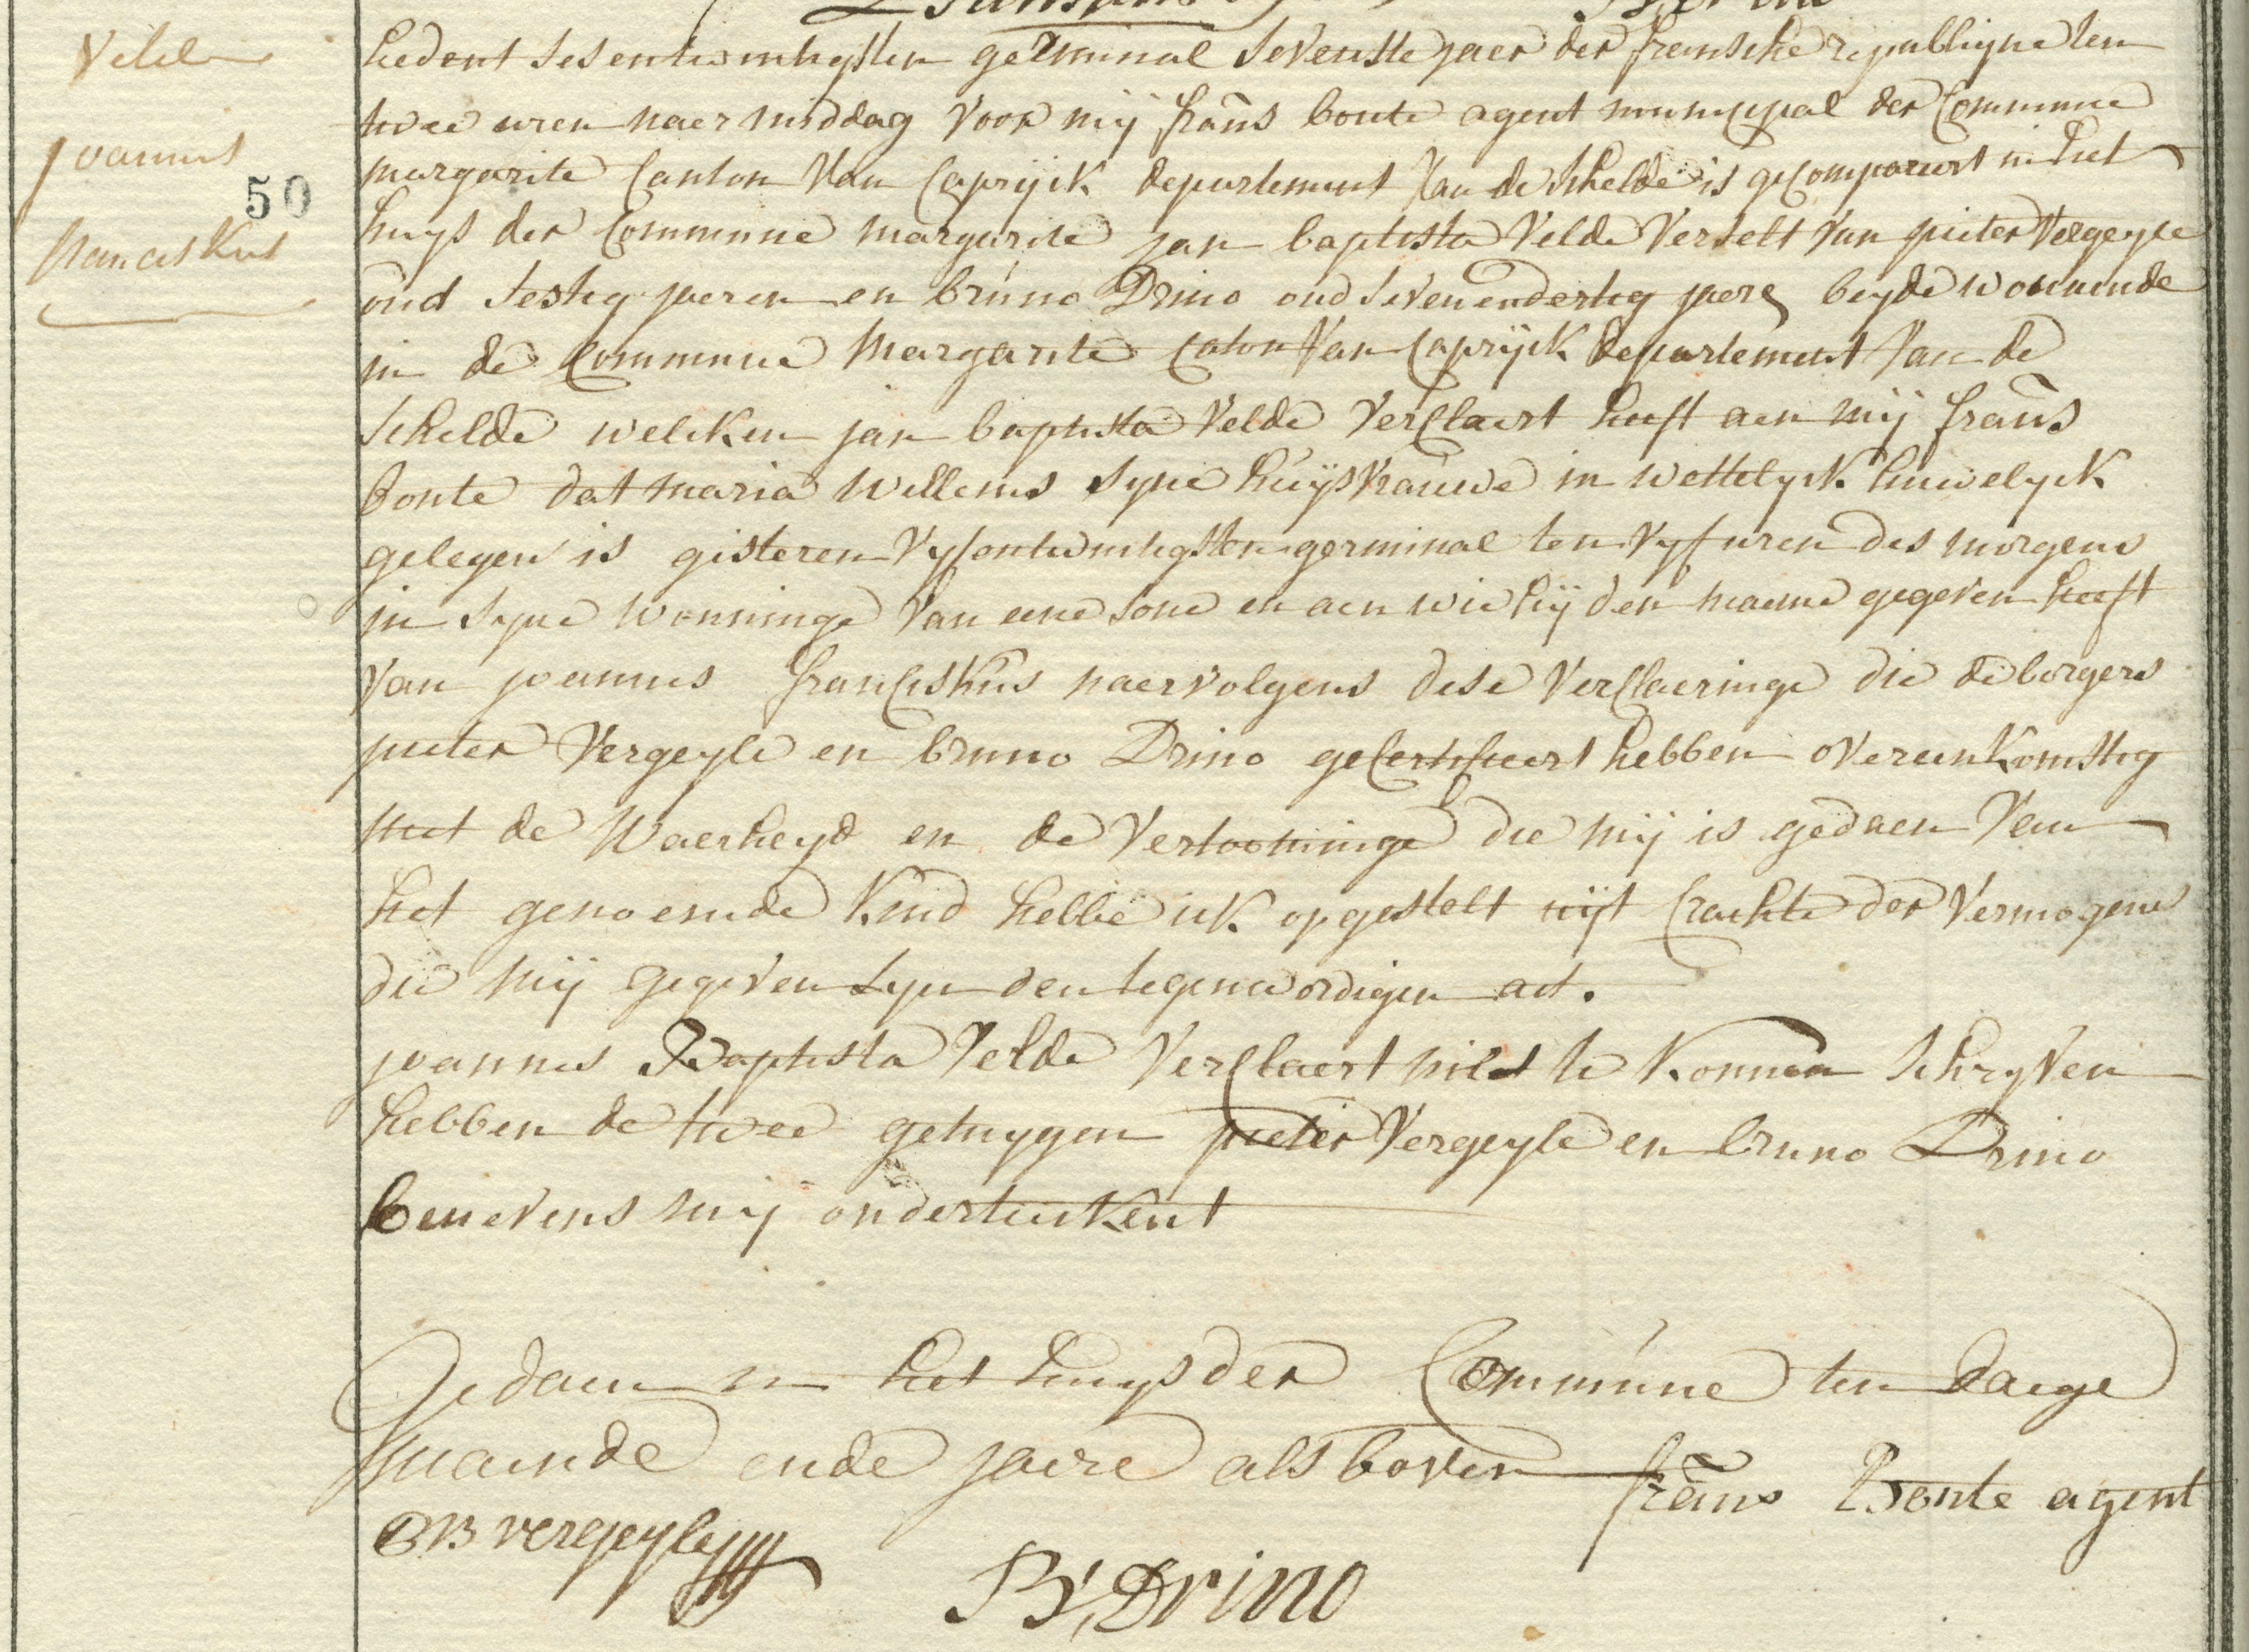 Velde
joannes
50
franciskus
hedent sesentwintigsten germinal sevenste jaer der fransche republique ten
twee uren naer middag voor mij frans bonte agent municipal der Commune
margarite Canton Van Caprijck departement Van de schelde is geCompareert in het
huys der Commune margarite jan baptista Velde Verselt Van pieter Vergeyle
oud sestig jaeren en bruno Drino oud sevenendertig jaere beyde woonende
in de Commune Margarite Caton Van Caprijck departement Van de
schelde welcken jan baptista Velde VerClaert heeft aen mij frans
bonte dat maria Willems syne huijsvrauwe in wettelyck huwelyck
gelegen is gisteren Vyfentwintigsten germinal ten vyf uren des morgens
in syne wonninge Van eene sone en aen wie hij den naeme gegeven heeft
Van joannes franCiskus naervolgens dese VerClaeringe die de borgers
pieter Vergeyle en bruno Drino geCertifieert hebben overeenkomstig
met de Waerheyd en de Vertooninge die mij is gedaen Van
het genoemde kind hebbe ick opgestelt uijt Crachte der Vermogens
die mij gegeven syn den tegenwordigen act.
joannes Baptista Velde VerClaert niet te konnen schryven
hebben de twee getuygen pieter Vergeyle en bruno Drino
benevens mij onderteekent
Gedaen in het huys der Commune ten daege
maende ende jaere als boven frans Bonte agent
vergeyle
B, Drino